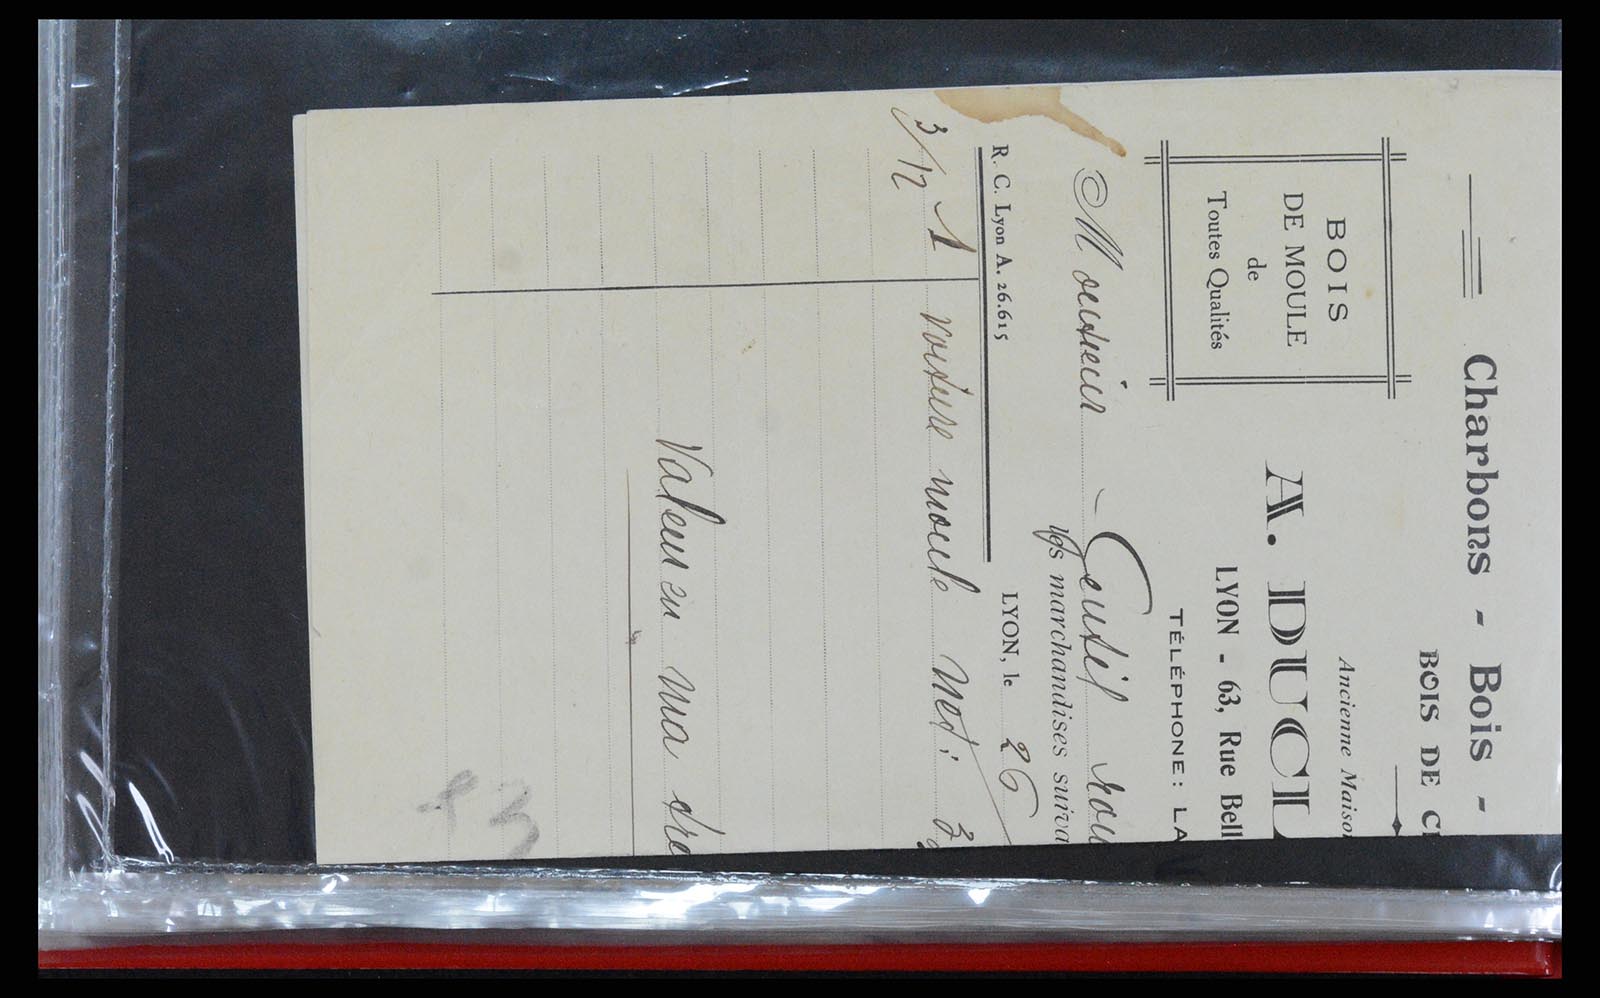 Charbons - Bois -
BOIS DE C
BOIS
DE MOULE
de
Toutes Qualités
Ancienne Maison
A. DUCL
LYON - 63, Rue Bell
TÉLÉPHONE: LA
Monsieur Gentil
les marchandises suiva
R. C. Lyon A. 26.615
LYON, le 26
3/12 1 voiture moule Net: 3
Valeur en ma